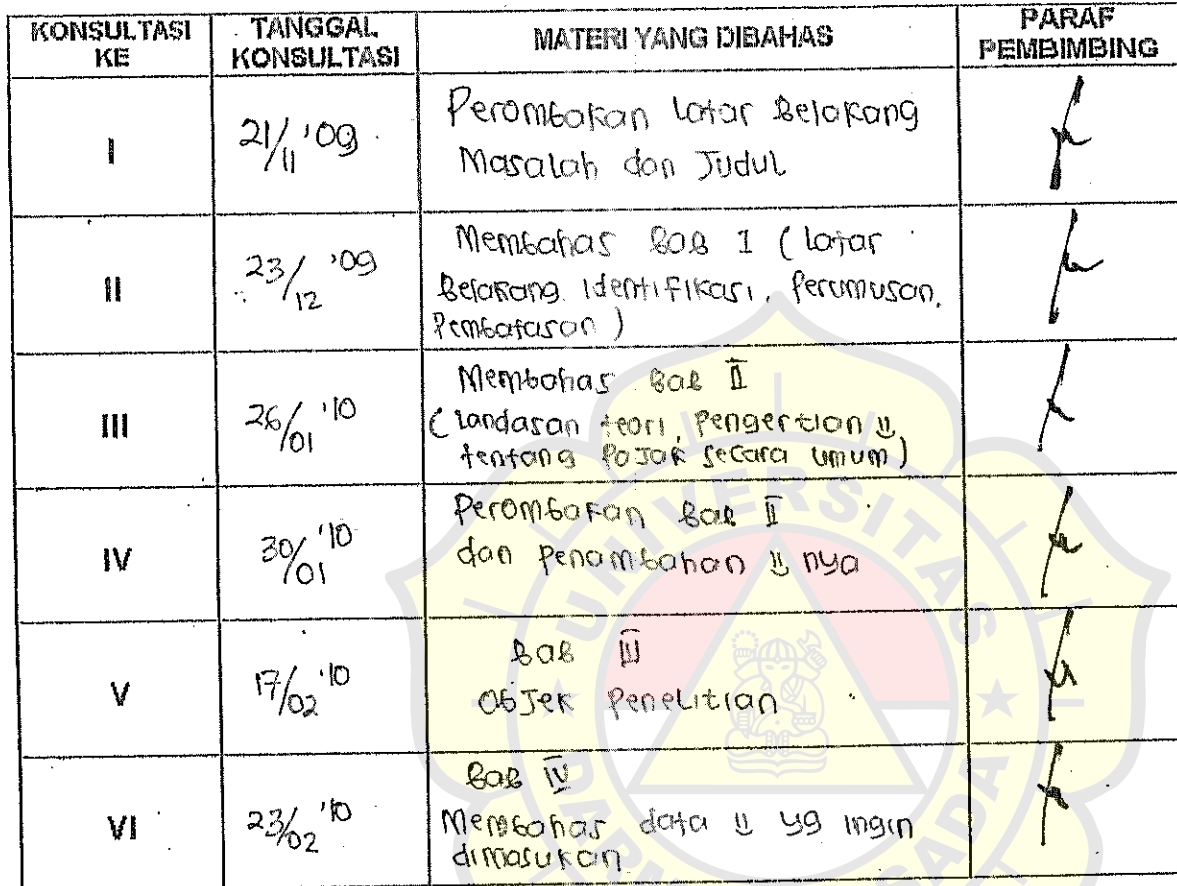 KONSULTASI KE
TANGGAL KONSULTASI
MATERI YANG DIBAHAS
PARAF PEMBIMBING
I
21/11 '09
Perombakan Latar Belakang
Masalah dan Judul
II
23/12 '09
Membahas Bab I (Latar
Belakang Identifikasi, Perumusan,
Pembatasan)
III
26/01 '10
Membahas Bab II
(Landasan teori, Pengertian "
tentang Pajak secara umum)
IV
30/01 '10
Perombakan Bab II
dan Penambahan " nya
V
17/02 '10
Bab III
Objek Penelitian
VI
23/02 '10
Bab IV
Membahas data " yg ingin
dimasukan
UNIVERSITAS